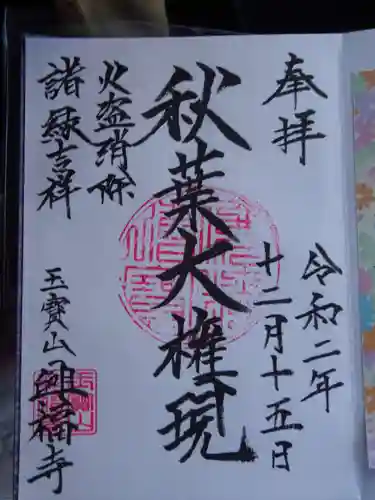 奉拝
令和二年
十二月十五日
秋葉大権現
火盗消除
諸縁吉祥
玉寶山興福寺